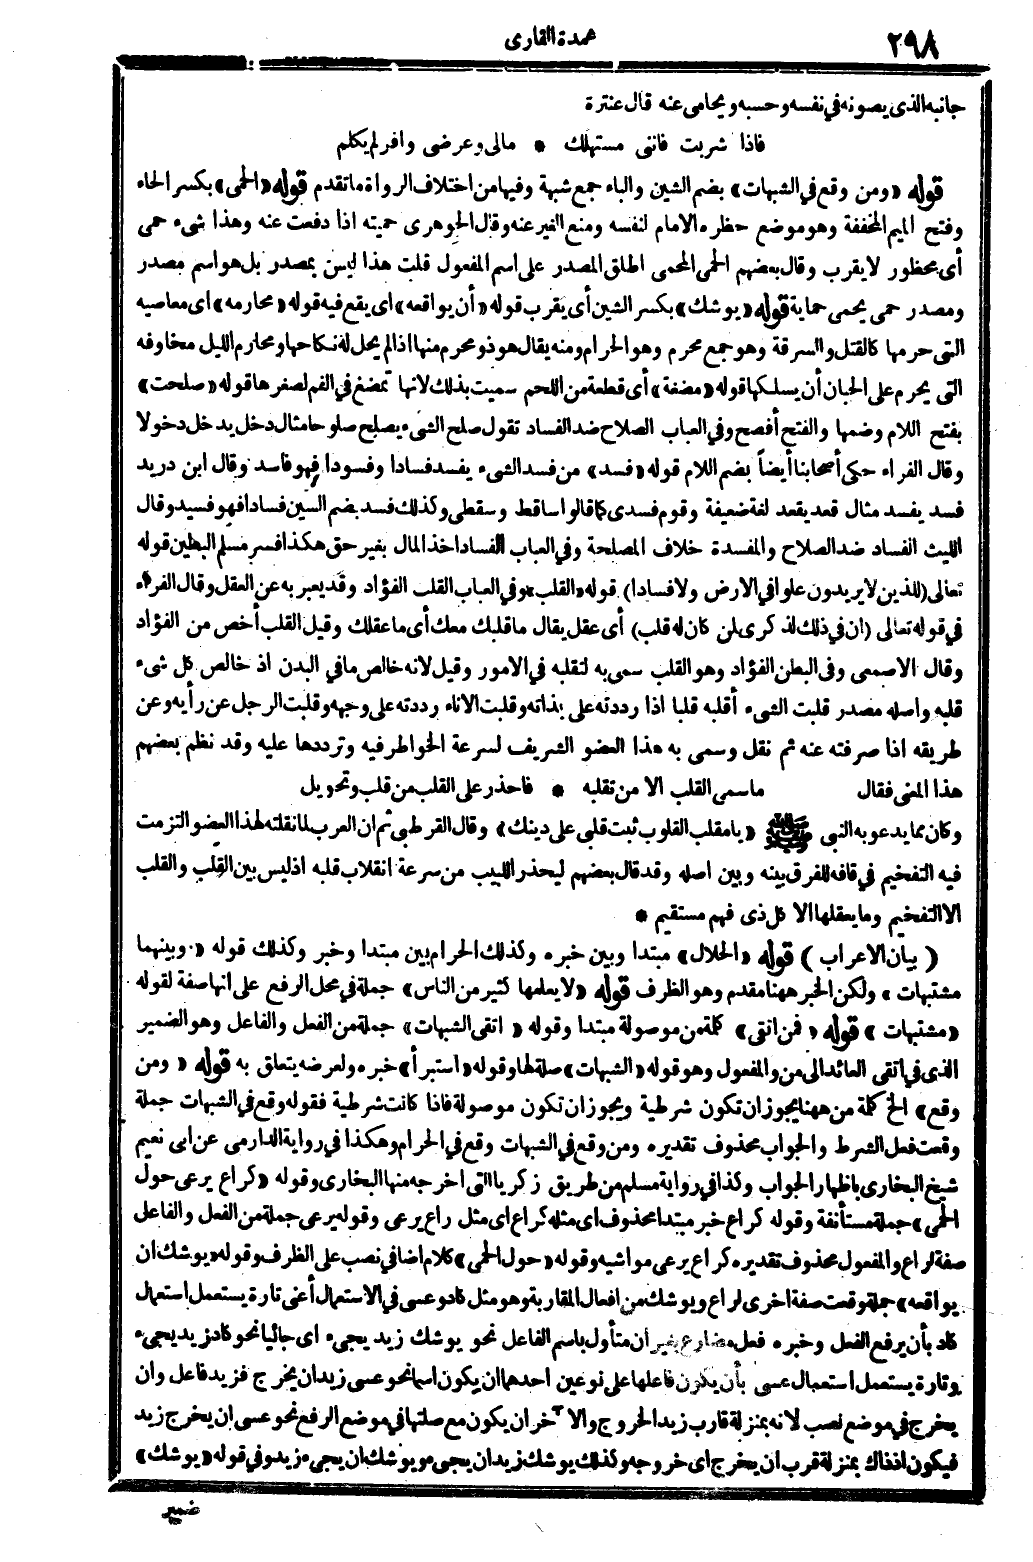 ٢٩٨
عمدة القارى
جانبه الذى يصونه فى نفسه وحسبه ويحامى عنه قال عنترة
فاذا شربت فاننى مستهلك * مالى وعرضى وافر لم يكلم
قوله «ومن وقع فى الشبهات» بضم الشين والباء جمع شبهة وفيها من اختلاف الرواة ما تقدم قوله «الحمى» بكسر الحاء
وفتح الميم المخففة وهو موضع حظره الامام لنفسه ومنع الغير عنه وقال الجوهرى حميته اذا دفعت عنه وهذا شىء حمى
أى محظور لا يقرب وقال بعضهم الحمى المحمى اطلق المصدر على اسم المفعول قلت هذا ليس بمصدر بل هو اسم مصدر
ومصدر حمى يحمى حماية قوله «يوشك» بكسر الشين أى يقرب قوله «أن يواقعه» اى يقع فيه قوله «محارمه» اى معاصيه
التى حرمها كالقتل والسرقة وهو جمع محرم وهو الحرام ومنه يقال هو ذو محرم منها اذا لم يحل له نكاحها ومحارم الليل مخاوفه
التى يحرم على الجبان أن يسلكها قوله «مضغة» أى قطعة من اللحم سميت بذلك لانها تمضغ فى الفم لصغرها قوله «صلحت»
بفتح اللام وضمها والفتح أفصح وفى العباب الصلاح ضد الفساد تقول صلح الشىء يصلح صلوحا مثال دخل يدخل دخولا
وقال الفراء حكى أصحابنا أيضاً بضم اللام قوله «فسد» من فسد الشىء يفسد فسادا وفسودا فهو فاسد وقال ابن دريد
فسد يفسد مثال قعد يقعد لغة ضعيفة وقوم فسدى كما قالوا ساقط وسقطى وكذلك فسد بضم السين فسادا فهو فسيد وقال
الليث الفساد ضد الصلاح والمفسدة خلاف المصلحة وفى العباب الفساد اخذ المال بغير حق هكذا فسر مسلم البطين قوله
تعالى (للذين لا يريدون علوا فى الارض ولا فسادا) قوله «القلب» وفى العباب القلب الفؤاد وقد يعبر به عن العقل وقال الفراء
فى قوله تعالى (ان فى ذلك لذكرى لمن كان له قلب) أى عقل يقال ما قلبك معك أى ما عقلك وقيل القلب أخص من الفؤاد
وقال الاصمعى وفى البطن الفؤاد وهو القلب سمى به لتقلبه فى الامور وقيل لانه خالص ما فى البدن اذ خالص كل شىء
قلبه واصله مصدر قلبت الشىء أقلبه قلبا اذا رددته على بذاته وقلبت الاناء رددته على وجهه وقلبت الرجل عن رأيه وعن
طريقه اذا صرفته عنه ثم نقل وسمى به هذا العضو الشريف لسرعة الخواطر فيه وترددها عليه وقد نظم بعضهم
هذا المعنى فقال ما سمى القلب الا من تقلبه * فاحذر على القلب من قلب وتحويل
وكان مما يدعو به النبى ﷺ «يا مقلب القلوب ثبت قلبى على دينك» وقال القرطبى ثم ان العرب لما نقلته لهذا العضو التزمت
فيه التفخيم فى قافه للفرق بينه وبين اصله وقد قال بعضهم ليحذر اللبيب من سرعة انقلاب قلبه اذ ليس بين القلب والقلب
الا التفخيم وما يعقلها الا كل ذى فهم مستقيم *
( بيان الاعراب ) قوله «الحلال» مبتدا وبين خبره وكذلك الحرام بين مبتدا وخبر وكذلك قوله «وبينهما
مشتبهات» ولكن الخبر ههنا مقدم وهو الظرف قوله «لا يعلمها كثير من الناس» جملة فى محل الرفع على انها صفة لقوله
«مشتبهات» قوله «فمن اتقى» كلمة من موصولة مبتدا وقوله «اتقى الشبهات» جملة من الفعل والفاعل وهو الضمير
الذى فى اتقى العائد الى من والمفعول وهو قوله «الشبهات» صلة لها وقوله «استبرأ» خبره ولعرضه يتعلق به قوله «ومن
وقع» الخ كلمة من ههنا يجوز ان تكون شرطية ويجوز ان تكون موصولة فاذا كانت شرطية فقوله وقع فى الشبهات جملة
وقعت فعل الشرط والجواب محذوف تقديره ومن وقع فى الشبهات وقع فى الحرام وهكذا فى رواية الدارمى عن ابى نعيم
شيخ البخارى باظهار الجواب وكذا فى رواية مسلم من طريق زكريا التى اخرجه منها البخارى وقوله «كراع يرعى حول
الحمى» جملة مستأنفة وقوله كراع خبر مبتدا محذوف اى مثله كراع اى مثل راع يرعى وقوله يرعى جملة من الفعل والفاعل
صفة لراع والمفعول محذوف تقديره كراع يرعى مواشيه وقوله «حول الحمى» كلام اضافى نصب على الظرف وقوله «يوشك ان
يواقعه» جملة وقعت صفة اخرى لراع ويوشك من افعال المقاربة وهو مثل كاد وعسى فى الاستعمال أعنى تارة يستعمل استعمال
كاد بأن يرفع الفعل وخبره فعل مضارع بغير ان متأول باسم الفاعل نحو يوشك زيد يجىء اى جائيا نحو كاد زيد يجىء
وتارة يستعمل استعمال عسى بأن يكون فاعلها على نوعين احدهما ان يكون اسما نحو عسى زيد ان يخرج فزيد فاعل وان
يخرج فى موضع نصب لانه بمنزلة قارب زيد الخروج والآخر ان يكون مع صلتها فى موضع الرفع نحو عسى ان يخرج زيد
فيكون اذ ذاك بمنزلة قرب ان يخرج اى خروجه وكذلك يوشك زيد ان يجىء ويوشك ان يجىء زيد وفى قوله «يوشك»
ضمير